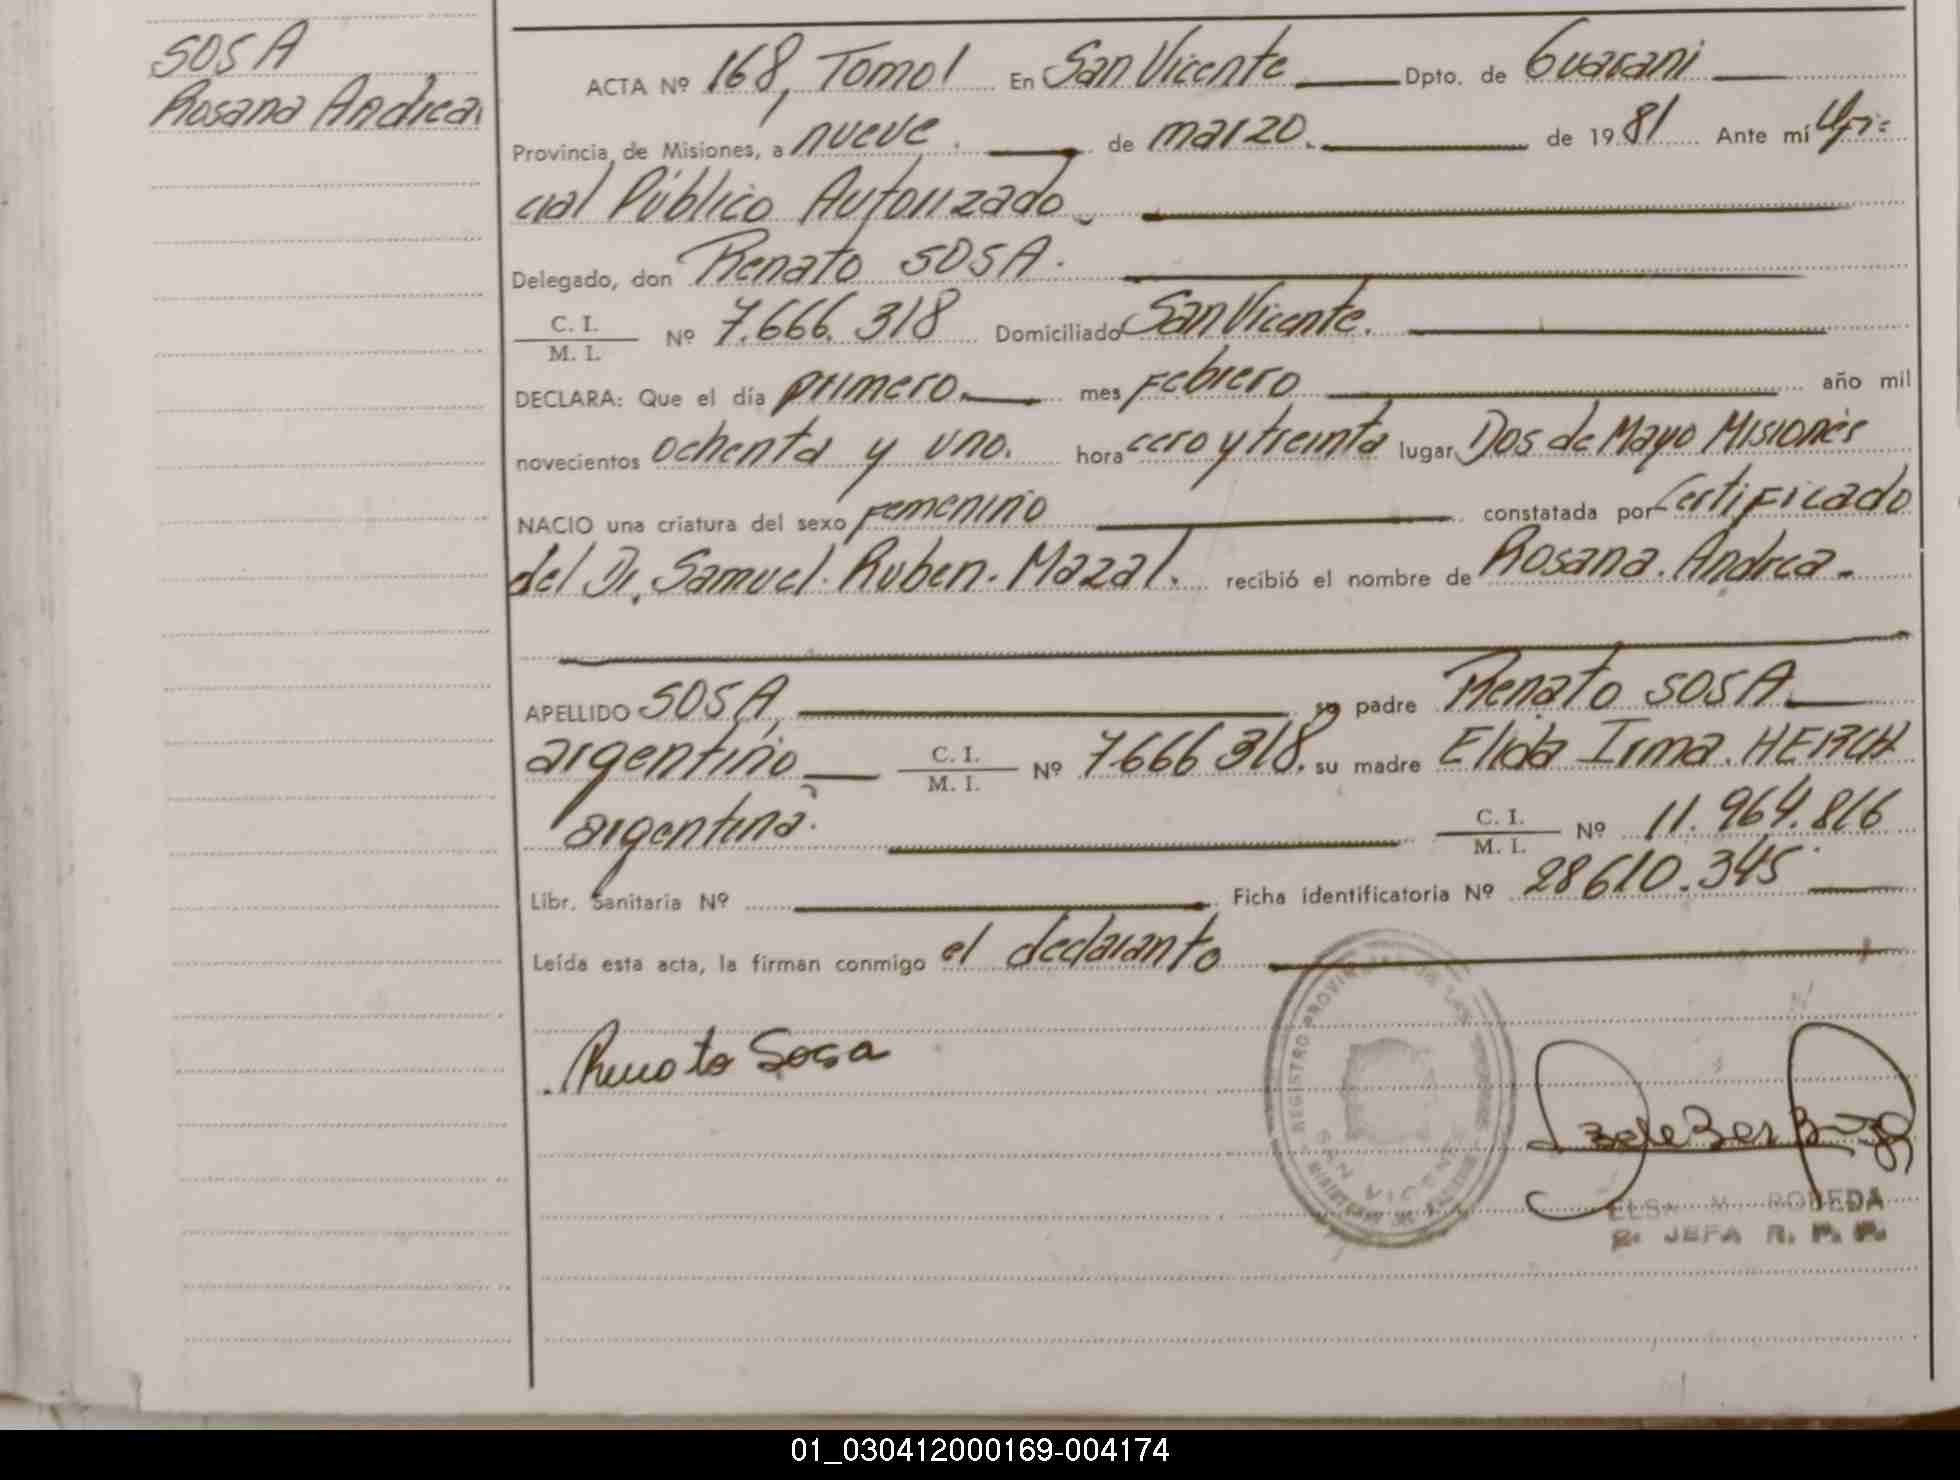 SOSA
Rosana Andrea
ACTA Nº 168, Tomo I En San Vicente Dpto. de Guarani
Provincia de Misiones, a nueve de marzo. de 1981 Ante mí Ofi-
cial Público Autorizado
Delegado, don Renato SOSA.
C. I.
M. I. Nº 7.666.318 Domiciliado San Vicente.
DECLARA: Que el día primero. mes Febrero año mil
novecientos ochenta y uno. hora cero y treinta lugar Dos de Mayo Misiones
NACIO una criatura del sexo Femenino constatada por Certificado
del Dr. Samuel. Ruben. Mazal. recibió el nombre de Rosana. Andrea.
APELLIDO SOSA, su padre Renato SOSA.
argentino C. I. M. I. Nº 7.666.318. su madre Elida Irma.
argentina. C. I. M. I. Nº 11.964.816
Libr. Sanitaria Nº Ficha identificatoria Nº 28610.345
Leída esta acta, la firman conmigo el declaranto
Renato Sosa
REGISTRO PROVINCIAL DE LAS PERSONAS
SAN VICENTE
MINISTERIO DE
ELSA M. ROBEDA
JEFA R. P. P.